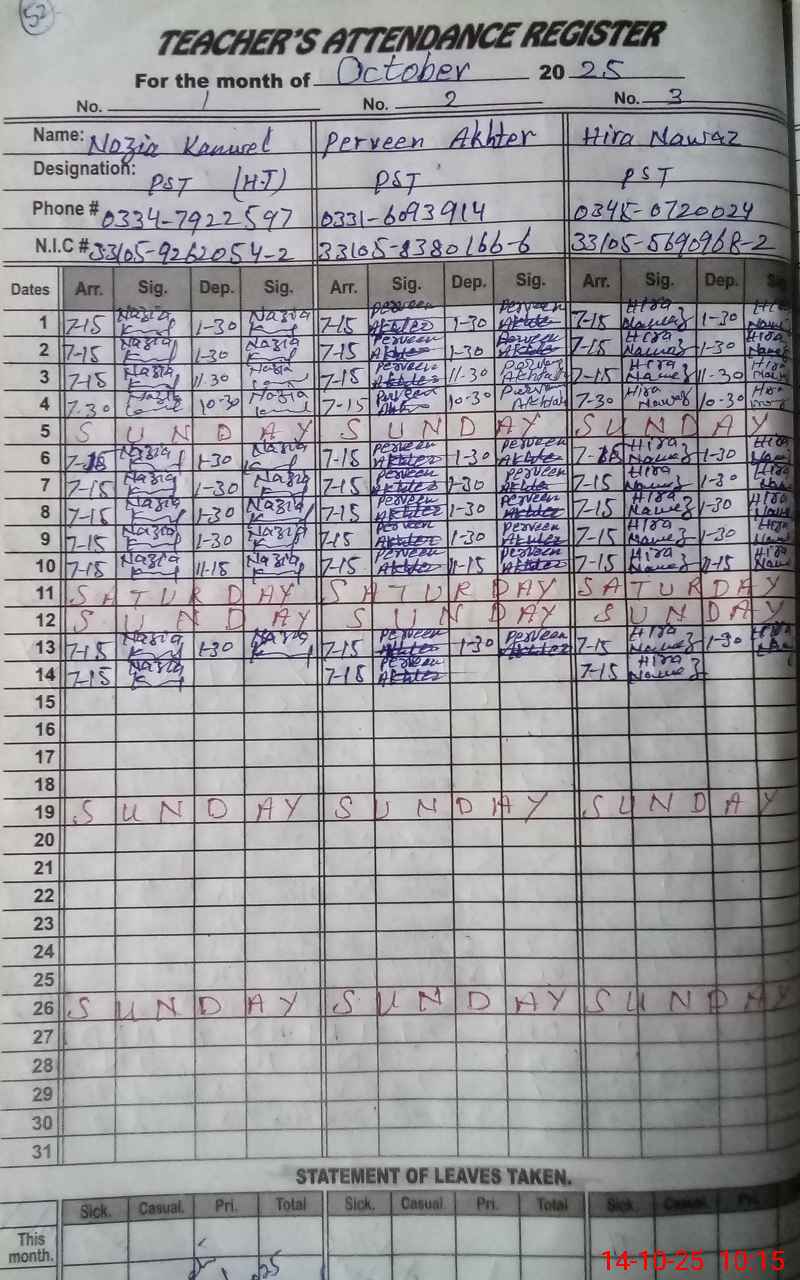 52
TEACHER'S ATTENDANCE REGISTER
For the month of October 2025
No. 1 No. 2 No. 3
Name: Nazia Kanwel Perveen Akhter Hira Nawaz
Designation: PST (H.T) PST PST
Phone # 0334-7922597 0331-6093914 0345-0720024
N.I.C # 33105-9262054-2 33105-8380166-6 33105-5690968-2
Dates Arr. Sig. Dep. Sig. Arr. Sig. Dep. Sig. Arr. Sig. Dep.
1 7-15 Nazia K 1-30 Nazia K 7-15 Perveen Akhter 1-30 Perveen Akhter 7-15 Hira Nawaz 1-30 Hira
2 7-15 Nazia K 1-30 Nazia K 7-15 Perveen Akhter 1-30 Perveen Akhter 7-15 Hira Nawaz 1-30 Hira
3 7-15 Nazia K 11.30 Nazia 7-15 Perveen Akhter 11-30 Perveen Akhtar 7-15 Hira Nawaz 11-30 Hira
4 7.30 Nazia 10-30 Nazia 7-15 Perveen 10-30 Perveen Akhtar 7-30 Hira Nawaz 10-30 Hira
5 SUNDAY SUNDAY SUNDAY
6 7-15 Nazia K 1-30 Nazia K 7-15 Perveen Akhter 1-30 Perveen Akhter 7-15 Hira Nawaz 1-30 Hira
7 7-15 Nazia K 1-30 Nazia K 7-15 Perveen Akhter 1-30 Perveen Akhter 7-15 Hira Nawaz 1-30 Hira
8 7-15 Nazia K 1-30 Nazia K 7-15 Perveen Akhter 1-30 Perveen Akhter 7-15 Hira Nawaz 1-30 Hira
9 7-15 Nazia K 1-30 Nazia K 7-15 Perveen Akhter 1-30 Perveen Akhter 7-15 Hira Nawaz 1-30 Hira
10 7-15 Nazia K 11-15 Nazia K 7-15 Perveen Akhter 11-15 Perveen Akhter 7-15 Hira Nawaz 11-15 Hira
11 SATURDAY SATURDAY SATURDAY
12 SUNDAY SUNDAY SUNDAY
13 7-15 Nazia K 1-30 Nazia K 7-15 Perveen Akhter 1-30 Perveen Akhter 7-15 Hira Nawaz 1-30 Hira
14 7-15 Nazia K 7-15 Perveen Akhter 7-15 Hira Nawaz
15
16
17
18
19 SUNDAY SUNDAY SUNDAY
20
21
22
23
24
25
26 SUNDAY SUNDAY SUNDAY
27
28
29
30
31
STATEMENT OF LEAVES TAKEN.
Sick. Casual. Pri. Total Sick. Casual. Pri. Total Sick. Casual. Pri.
This month.
14-10-25 10:15